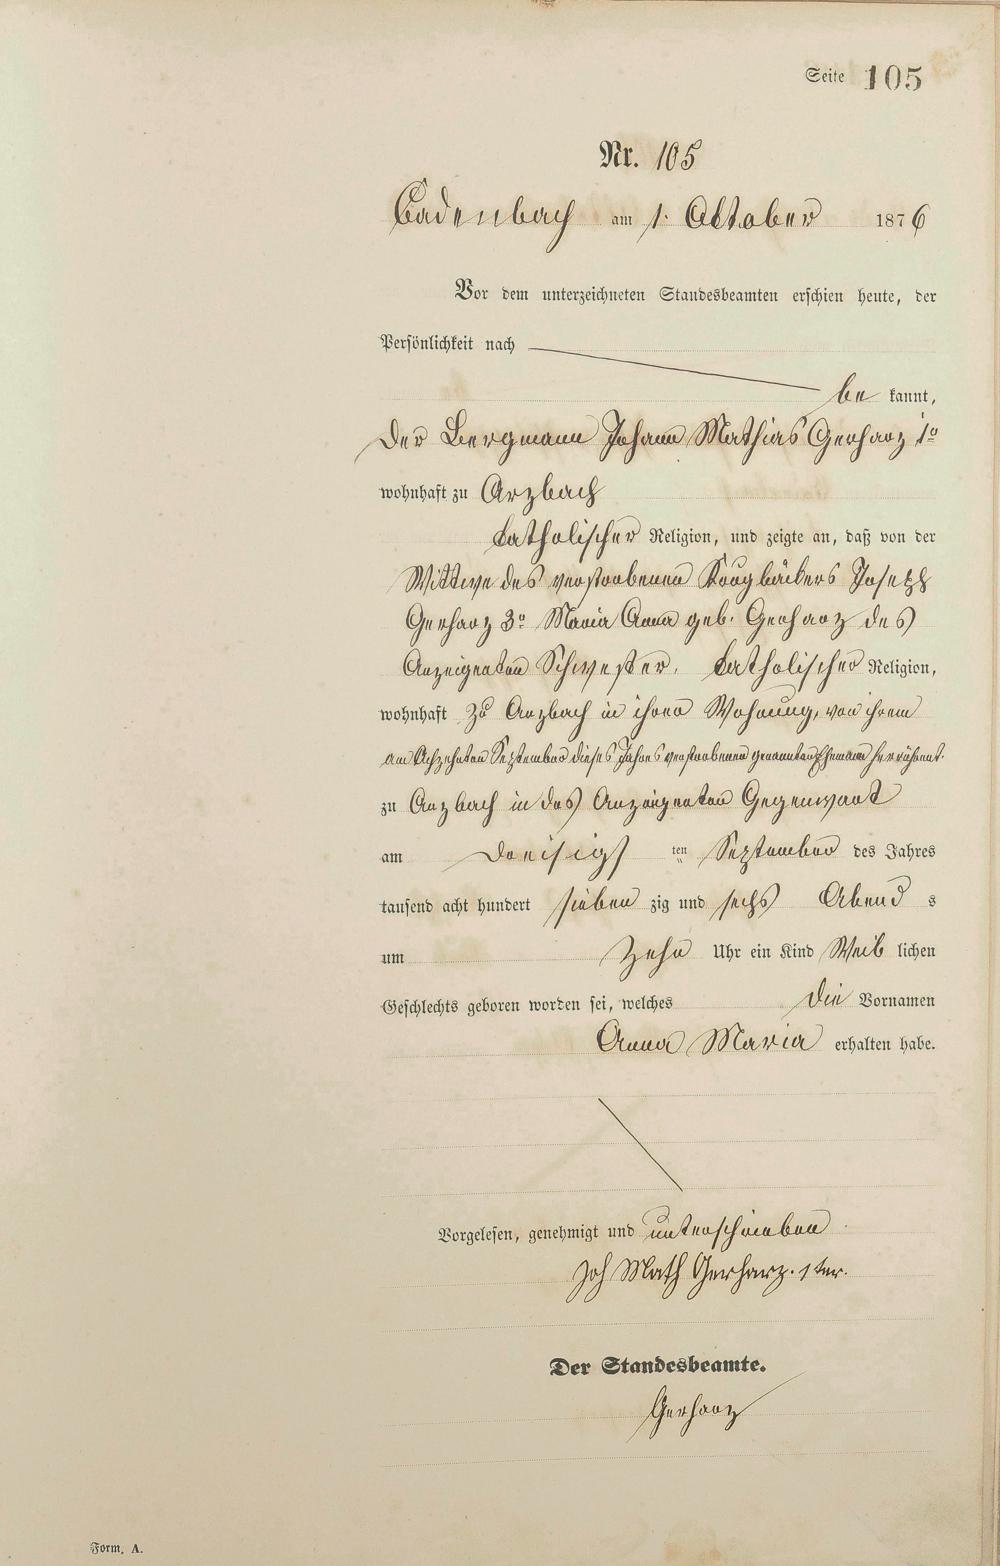 Seite 105
Nr. 105
Cadenbach am 1. Oktober 1876
Vor dem unterzeichneten Standesbeamten erschien heute, der
Persönlichkeit nach
be kannt,
der Bergmann Johann Mathias Gerharz 1o
wohnhaft zu Arzbach
katholischer Religion, und zeigte an, daß von der
Wittwe des verstorbenen Krugbäckers Joseph
Gerharz 3o Maria Anna geb. Gerharz des
Anzeigenten Schwester, katholischer Religion,
wohnhaft zu Arzbach in ihrer Wohnung, von ihrem
am Achzehnten September dieses Jahres verstorbenen genannten Ehemann herrührent.
zu Arzbach in des Anzeigenten Gegenwart
am dreisigs ten September des Jahres
tausend acht hundert sieben zig und sechs Abend s
um Zehn Uhr ein Kind Weib lichen
Geschlechts geboren worden sei, welches die Vornamen
Anna Maria erhalten habe.
Vorgelesen, genehmigt und unterschrieben
Joh Math Gerharz. 1ter.
Der Standesbeamte.
Gerharz
Form. A.